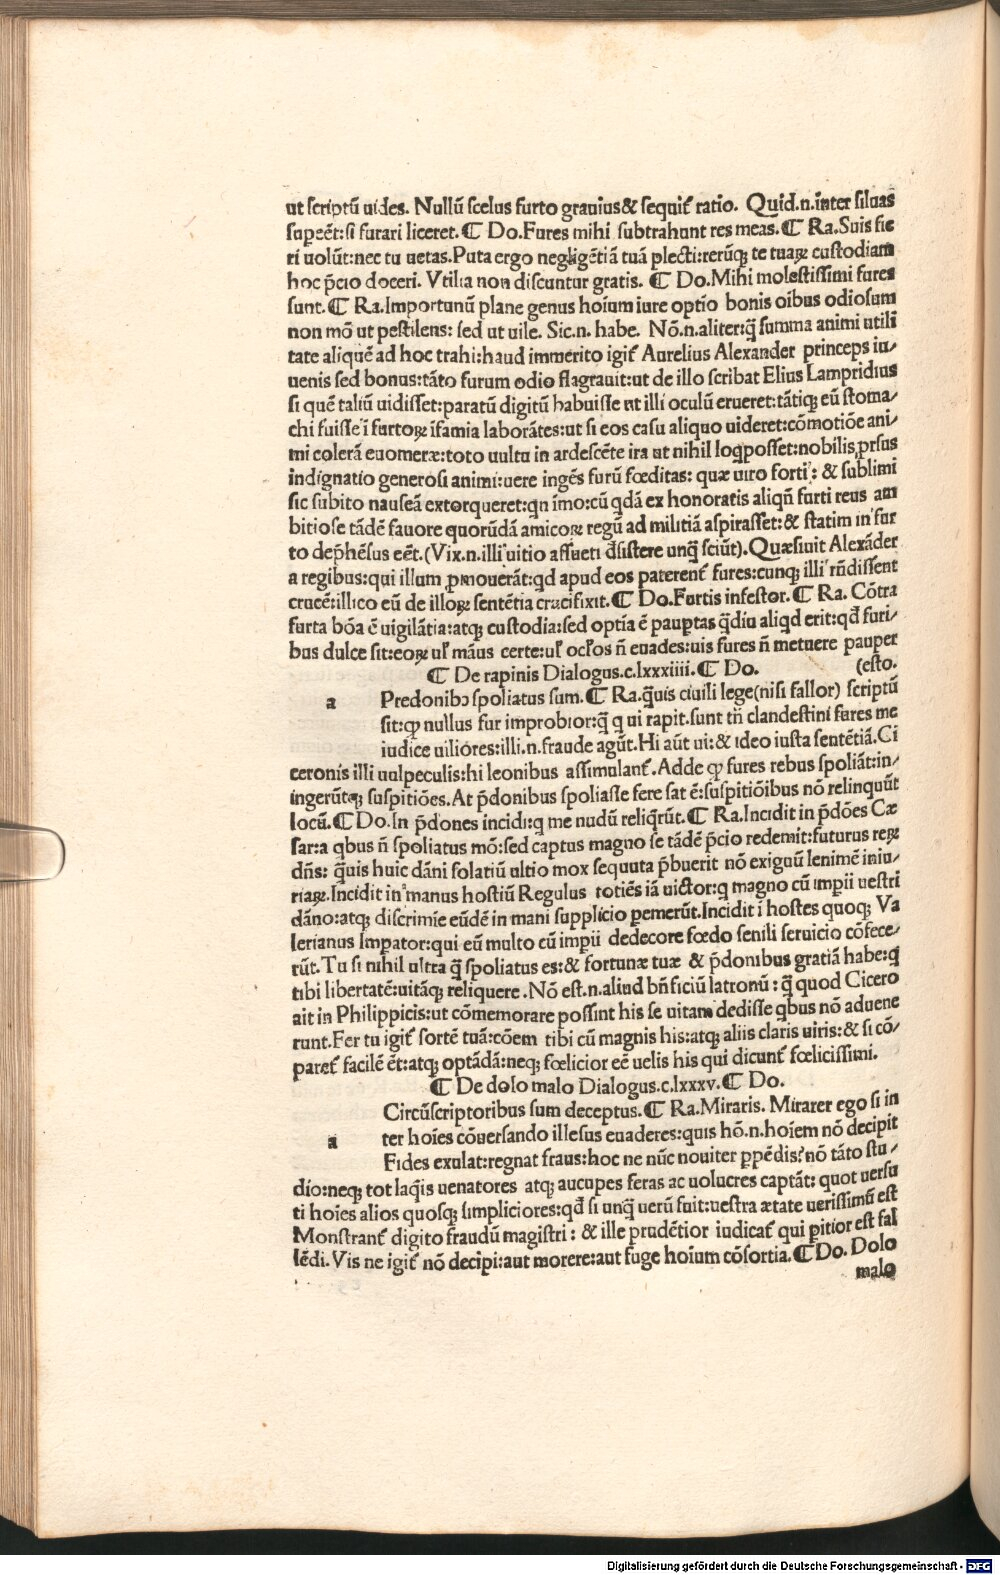 ut scriptū uides. Nullū scelus furto grauius& sequit᷑ ratio. Quid.n.inter siluas
supeēt:si furari liceret.⁋ Do.Fures mihi subtrahunt res meas.⁋ Ra.Suis fie
ri uolūt:nec tu uetas.Puta ergo negligētiā tuā plecti:rerūqȝ te tuaꝝ custodiam
hoc p̄cio doceri. Vtilia non discuntur gratis. ⁋ Do.Mihi molestissimi fures
sunt.⁋ Ra.Importunū plane genus hoium iure optīo bonis oībus odiosum
non mō ut pestilens: sed ut uile. Sic.n. habe. Nō.n.aliter:q̄ summa animi utili
tate aliquē ad hoc trahi:haud immerito igit᷑ Aurelius Alexander princeps iu/
uenis sed bonus:tāto furum odio flagrauit:ut de illo scribat Elius Lampridius
si quē taliū uidisset:paratū digitū habuisse ut illi oculū erueret:tātiqȝ eū stoma/
chi fuisse ī furtoꝝ īfamia laborātes:ut si eos casu aliquo uideret:cōmotiōe ani/
mi colerā euomeræ:toto uultu in ardescēte ira ut nihil loq̄posset:nobilis ꝓsus
indignatio generosi animi:uere ingēs furū fœditas: quæ uiro forti: & sublimi
sic subito nauseā extorqueret:qn īmo:cū qdā ex honoratis aliqn̄ furti reus am
bitiose tādē fauore quorūdā amicoꝝ regū ad militiā aspirasset:& statim in fur
to dep̄hēsus eēt.(Vix.n.illi uitio assueti d̄sistere unq̄ sciūt).Quæsiuit Alexāder
a regibus:qui illum ꝓmouerāt:qd apud eos paterent᷑ fures:cunqȝ illi rn̄dissent
crucē:illico eū de illoꝝ sentētia crucifixit.⁋ Do.Furtis infestor.⁋ Ra. Cōtra
furta bōa ē uigilātia:atqȝ custodia:sed optīa ē paupertas q̄diu aliqd erit:qd̄ furi/
bus dulce sit:eoꝝ ul᷑ māus certe:ul᷑ ocl᷑os n̄ euades:uis fures n̄ metuere pauper
⁋ De rapinis Dialogus.c.lxxxiiii.⁋ Do. (esto.
a Predonibꝰ spoliatus sum.⁋ Ra.q̄uis ciuili lege(nisi fallor) scriptū
sit:ꝙ nullus fur improbior:q̄ q ui rapit.sunt tn̄ clandestini fures me
iudice uiliores:illi.n.fraude agūt.Hi aūt ui:& ideo iusta sentētiā.Ci
ceronis illi uulpeculis:hi leonibus assimulant᷑.Adde ꝙ fures rebus spoliāt:in/
ingerūtqȝ suspitiōes.At p̄donibus spoliasse fere sat ē:suspitiōibus nō relinquūt
locū.⁋ Do.In p̄dones incidi:q me nudū reliq̄rūt.⁋ Ra.Incidit in p̄dōes Cæ
sar:a qbus n̄ spoliatus mō:sed captus magno se tādē p̄cio redemit:futurus reꝝ
dn̄s: q̄uis huic dāni solatiū ultio mox sequuta p̄buerit nō exiguū lenimē iniu/
riaꝝ.Incidit in manus hostiū Regulus totiēs iā uictor:q magno cū impii uestri
dāno:atqȝ discrimīe eūdē in mani supplicio ꝑemerūt.Incidit ī hostes quoqȝ Va
lerianus Impator:qui eū multo cū impii dedecore fœdo senili seruicio cōfece/
rūt.Tu si nihil ultra q̄ spoliatus es:& fortunæ tuæ & p̄donibus gratiā habe:q
tibi libertatē:uitāqȝ reliquere.Nō est.n.aliud bn̄ficiū latronū: q̄ quod Cicero
ait in Philippicis:ut cōmemorare possint his se uitam dedisse qbus nō aduene
runt.Fer tu igit᷑ sortē tuā:cōem tibi cū magnis his:atqȝ aliis claris uiris:& si cō/
paret᷑ facilē ēt:atqȝ optādā:neqȝ fœlicior eē uelis his qui dicunt᷑ fœlicissimi.
⁋ De dolo malo Dialogus.c.lxxxv.⁋ Do.
Circūscriptoribus sum deceptus.⁋ Ra.Miraris. Mirarer ego si in
a ter hoīes cōuersando illesus euaderes:quis hō.n.hoīem nō decipit
Fides exulat:regnat fraus:hoc ne nūc nouiter ꝓpēdis?nō tāto stu/
dio:neqȝ tot laq̄is uenatores atqȝ aucupes feras ac uolucres captāt: quot uersu
ti hoīes alios quosqȝ simpliciores:qd̄ si unq̄ uerū fuit:uestra ætate uerissimū est
Monstrant᷑ digito fraudū magistri: & ille prudētior iudicat᷑ qui ꝑitior est fal
lēdi. Vis ne igit᷑ nō decipi:aut morere:aut fuge hoium cōsortia.⁋ Do. Dolo
malo
Digitalisierung gefördert durch die Deutsche Forschungsgemeinschaft - DFG